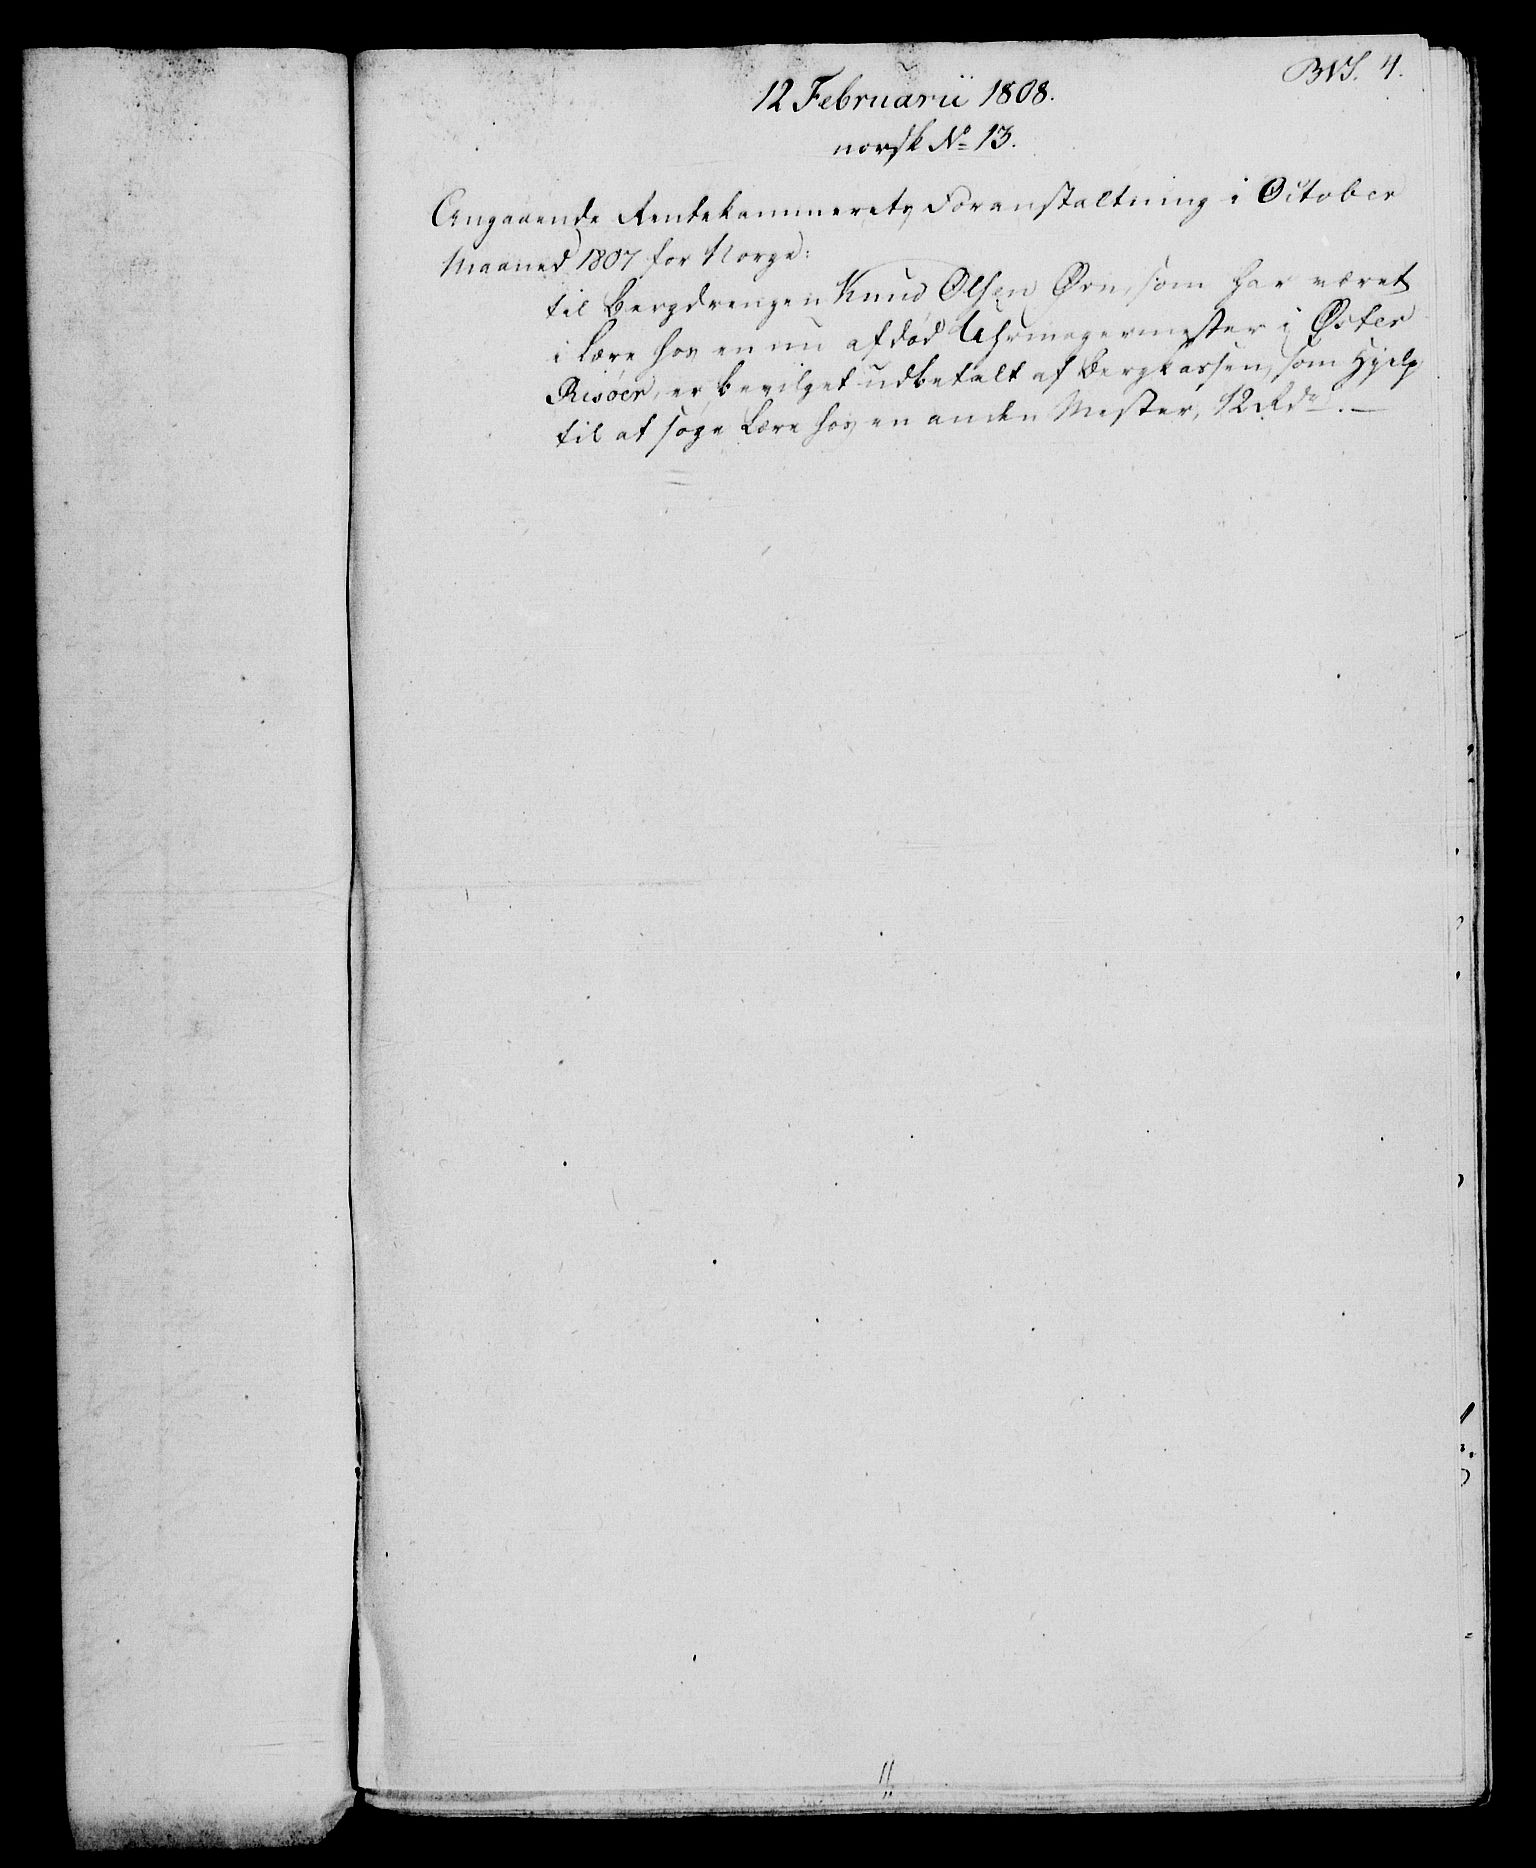 BVS. 4.
12 Februarii 1808.
norsk No 13.
Angaaende Rentekammerets Foranstaltning i October
Maaned 1807 for Norge:
til Bergdrengen Knud Olsen Örn, som har været
i Lære hos en nu afdød Uhrmagermester i Øster
Risöer, er bevilget udbetalt af Bergkassen, som Hjelp
til at søge Lære hos en anden Mester, 12 Rdr. —